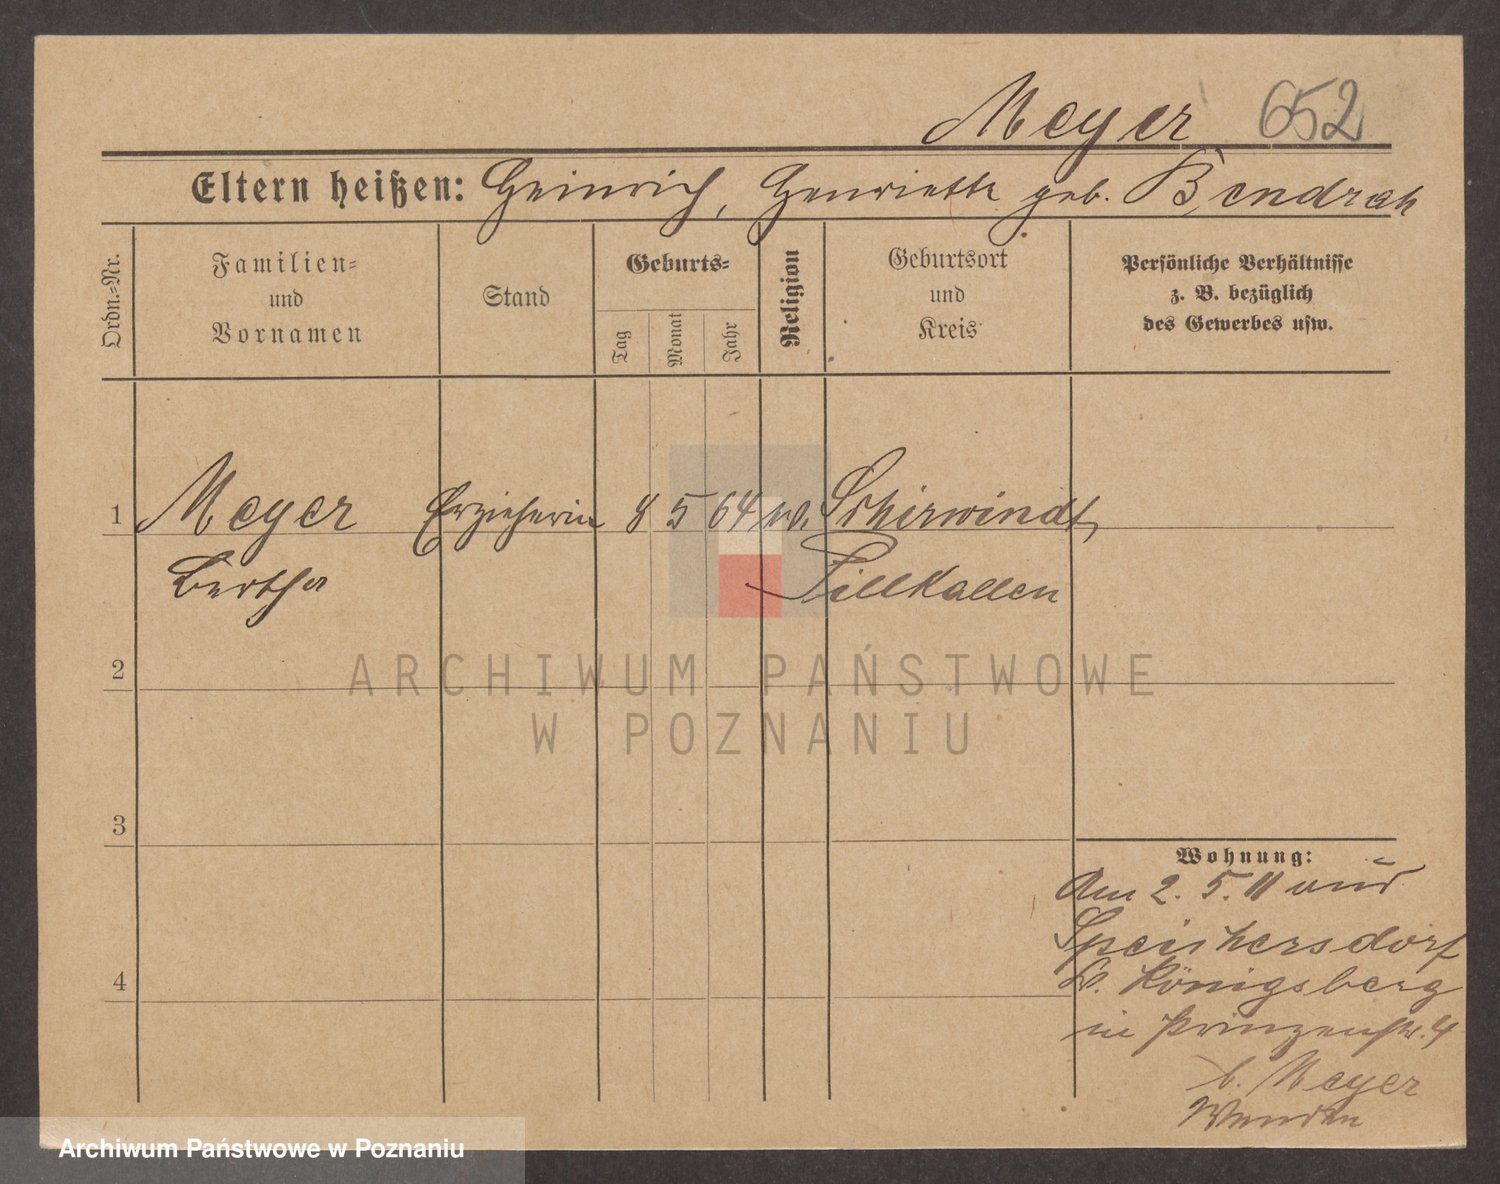 Meyer 652
Eltern heißen: Heinrich, Henriette geb. Bendrat
Ordn.=Nr.
Familien=
und
Vornamen
Stand
Geburts=
Tag
Monat
Jahr
Religion
Geburtsort
und
Kreis
Persönliche Verhältnisse
z. B. bezüglich
des Gewerbes usw.
1 Meyer Erzieherin 8 5 64 Schirwindt,
Bertha Pillkallen
2
3
4
Wohnung:
Am 2. 5. 11 aus
Speichersdorf
b. Königsberg
in Prinzenstr. 4
b. Meyer
Wenden
ARCHIWUM PAŃSTWOWE
W POZNANIU
Archiwum Państwowe w Poznaniu